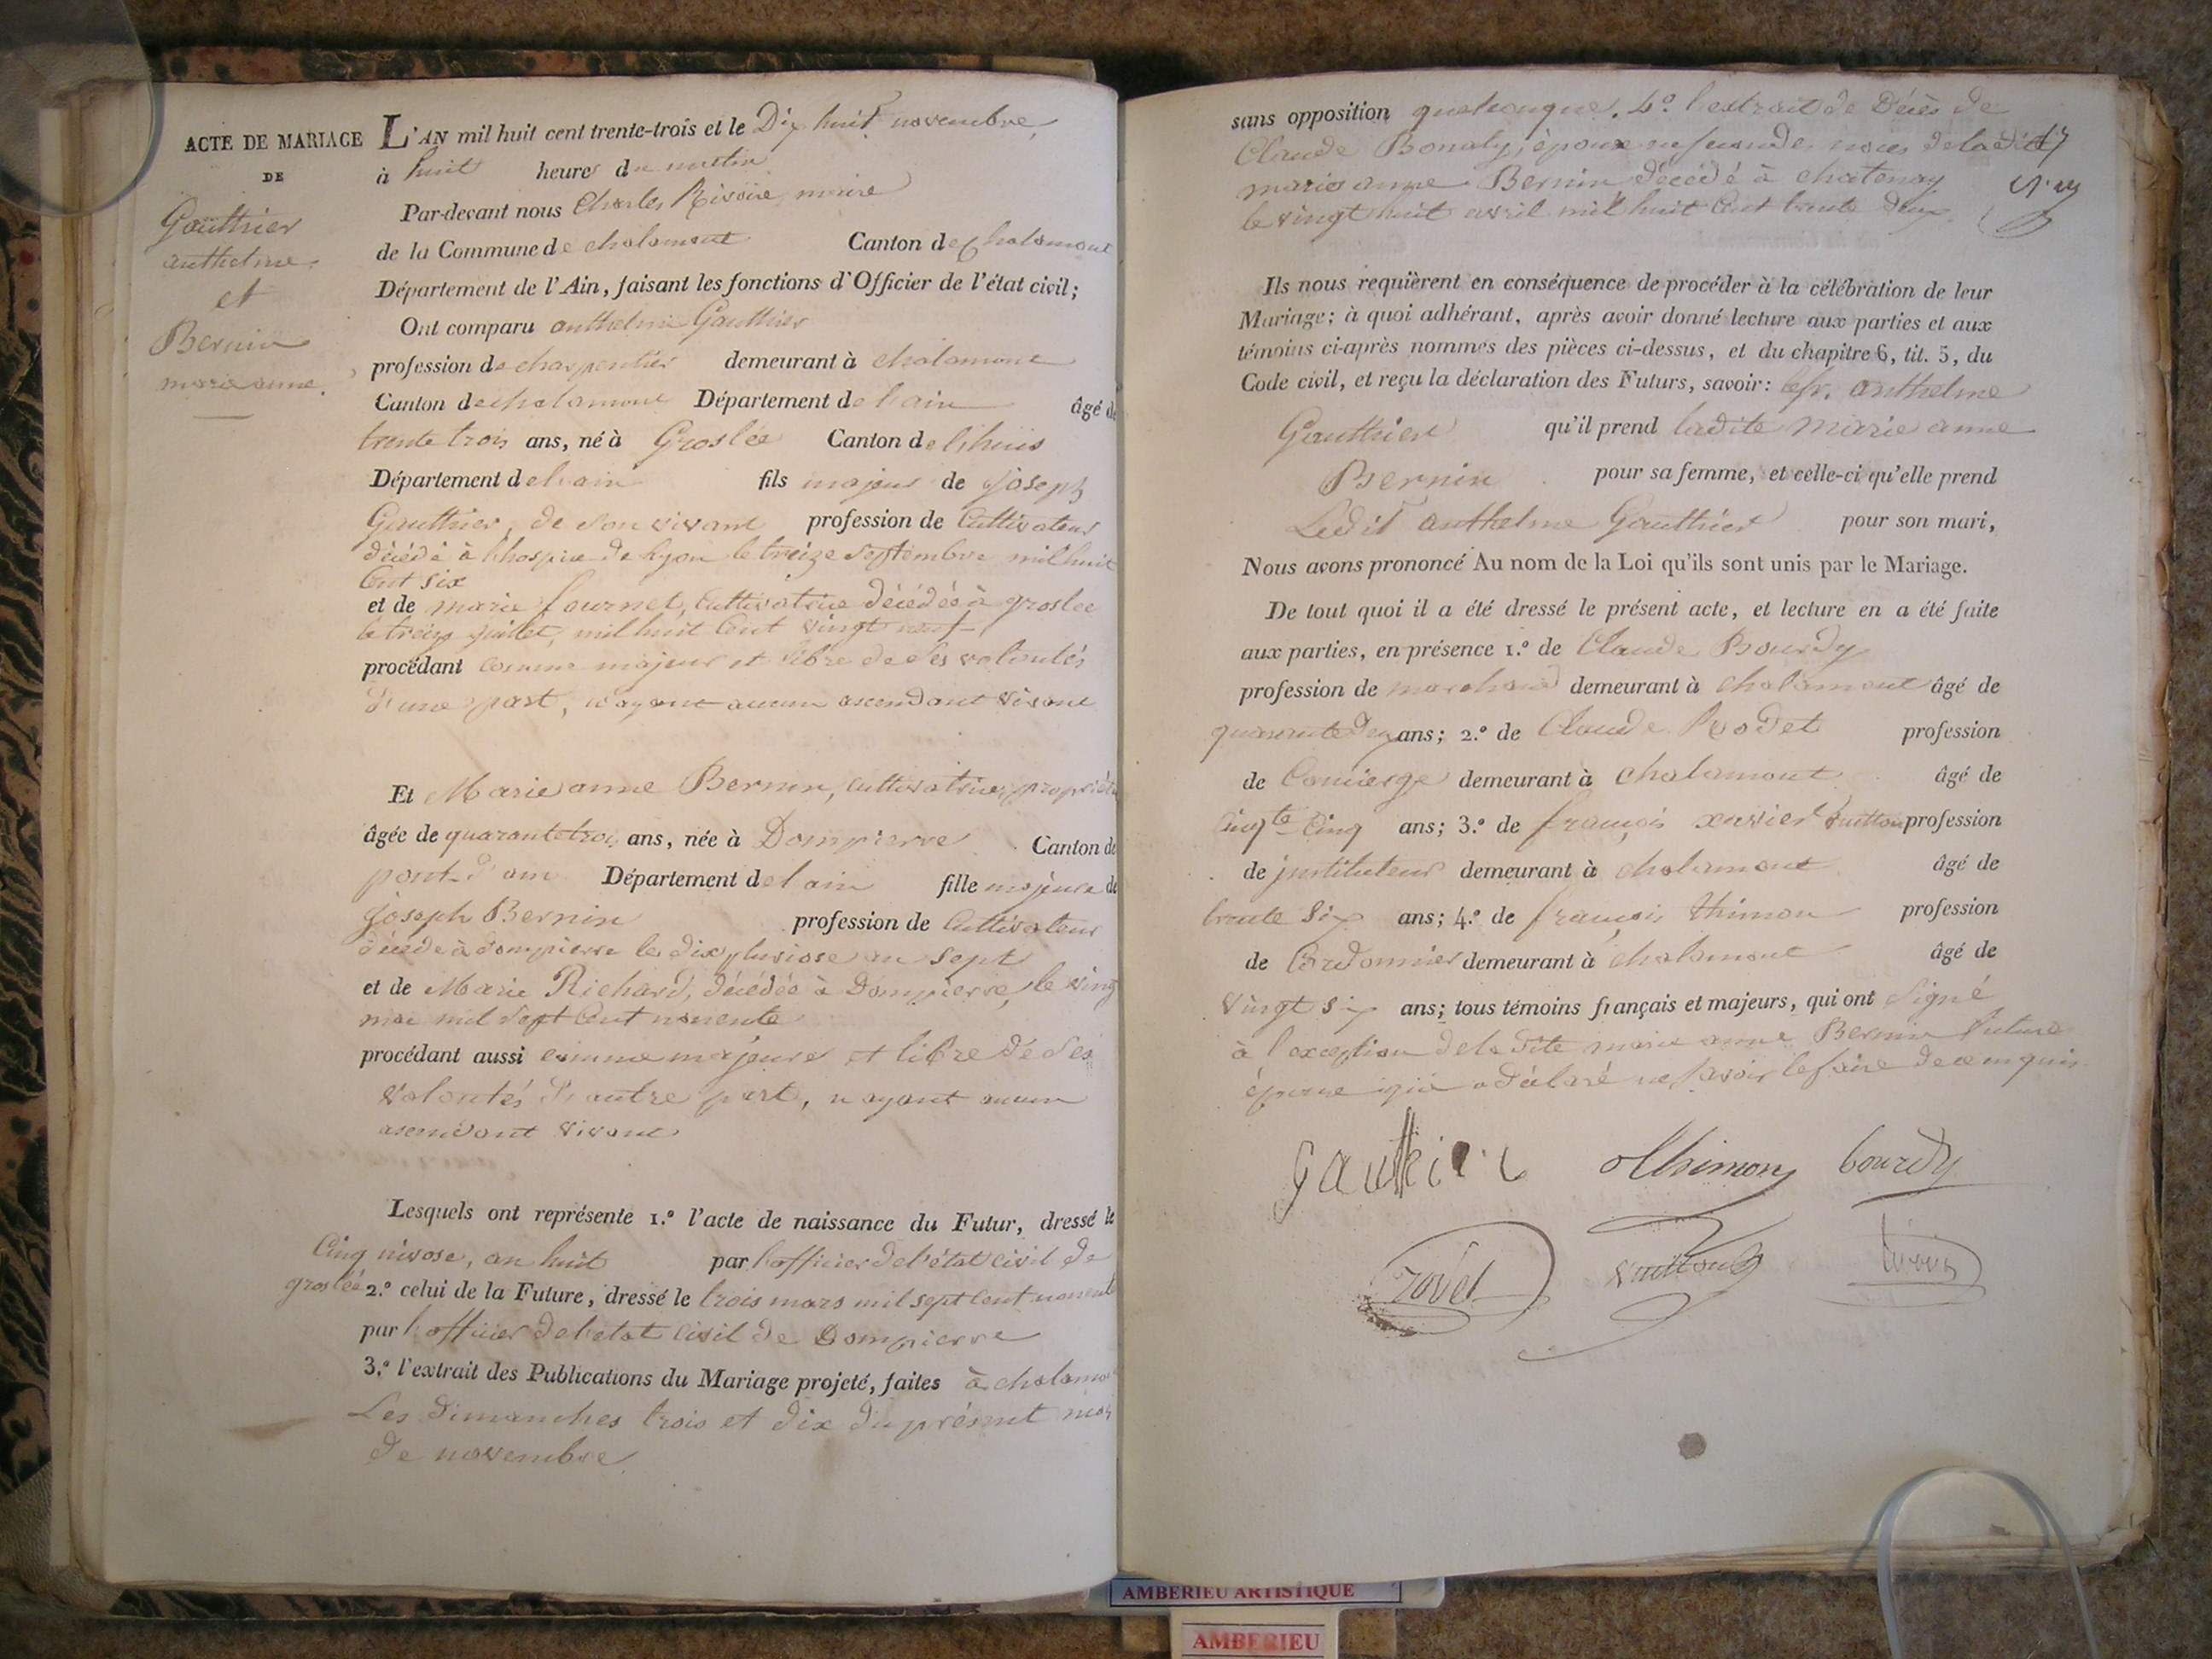 ACTE DE MARIAGE
DE
Gauthier
anthelme
et
Bernin
marie anne.
L'AN mil huit cent trente-trois et le Dix huit novembre,
à huit heures du matin
Par-devant nous Charles Rivoire maire
de la Commune de chalamont Canton de chalamont
Département de l'Ain, faisant les fonctions d'Officier de l'état civil;
Ont comparu anthelme Gauthier
profession de charpentier demeurant à chalamont
Canton de chalamont Département de l'ain âgé de
trente trois ans, né à Groslée Canton de lhuis
Département de l'ain fils majeur de joseph
Gauthier, de son vivant profession de Cultivateur
décédé à l'hospice de Lyon le treize septembre mil huit
Cent six
et de marie fournet, Cultivatrice décédée à groslee
le treize juillet, mil huit Cent vingt neuf
procédant comme majeur et libre de ses volontés
d'une part, n'ayant aucun ascendant vivant
Et Marie anne Bernin, cultivatrice, propriét
âgée de quarante trois ans, née à Dompierre Canton de
pont-d'ain Département de l'ain fille majeure de
Joseph Bernin profession de Cultivateur
décédé à dompierre le dix pluviose an sept
et de Marie Richard, décédée à Dompierre, le ving
mai mil sept Cent nonente
procédant aussi comme majeure et libre de ses
volontés d'autre part, n'ayant aucun
asendant vivant
Lesquels ont représenté 1.º l'acte de naissance du Futur, dressé le
Cinq nivose, an huit par l'officier de l'état civil de
groslée 2.º celui de la Future, dressé le trois mars mil sept Cent nonente
par l'officier de l'etat civil de Dompierre
3.º l'extrait des Publications du Mariage projeté, faites à chalamo
Les dimanches trois et dix du présent mois
de novembre
sans opposition quelconque. 4º l'extrait de Décès de
Claude Bonaly, époux en secondes noces de ladite
marie anne Bernin décédé à chatenay
le vingt huit avril mil huit Cent trente deux.
Ils nous requièrent en conséquence de procéder à la célébration de leur
Mariage; à quoi adhérant, après avoir donné lecture aux parties et aux
témoins ci-après nommés des pièces ci-dessus, et du chapitre 6, tit. 5, du
Code civil, et reçu la déclaration des Futurs, savoir: le sr. anthelme
Gauthier qu'il prend ladite Marie anne
Bernin pour sa femme, et celle-ci qu'elle prend
Ledit anthelme Gauthier pour son mari,
Nous avons prononcé Au nom de la Loi qu'ils sont unis par le Mariage.
De tout quoi il a été dressé le présent acte, et lecture en a été faite
aux parties, en présence 1.º de Claude Bourdy
profession de marchand demeurant à chalamont âgé de
quarante deux ans; 2.º de Claude Rodet profession
de Concierge demeurant à chalamont âgé de
Cinqte Cinq ans; 3.º de françois xavier Vuitton profession
de jnstituteur demeurant à chalamont âgé de
trente six ans; 4.º de françois thimon profession
de Cordonnier demeurant à chalamont âgé de
vingt six ans; tous témoins français et majeurs, qui ont signé
à l'exception de la dite marie anne Bernin future
épouse qui a déclaré ne savoir le faire de ce enquis.
gauthier thimon bourdy
rodet vuitton
AMBERIEU ARTISTIQUE
AMBERIEU